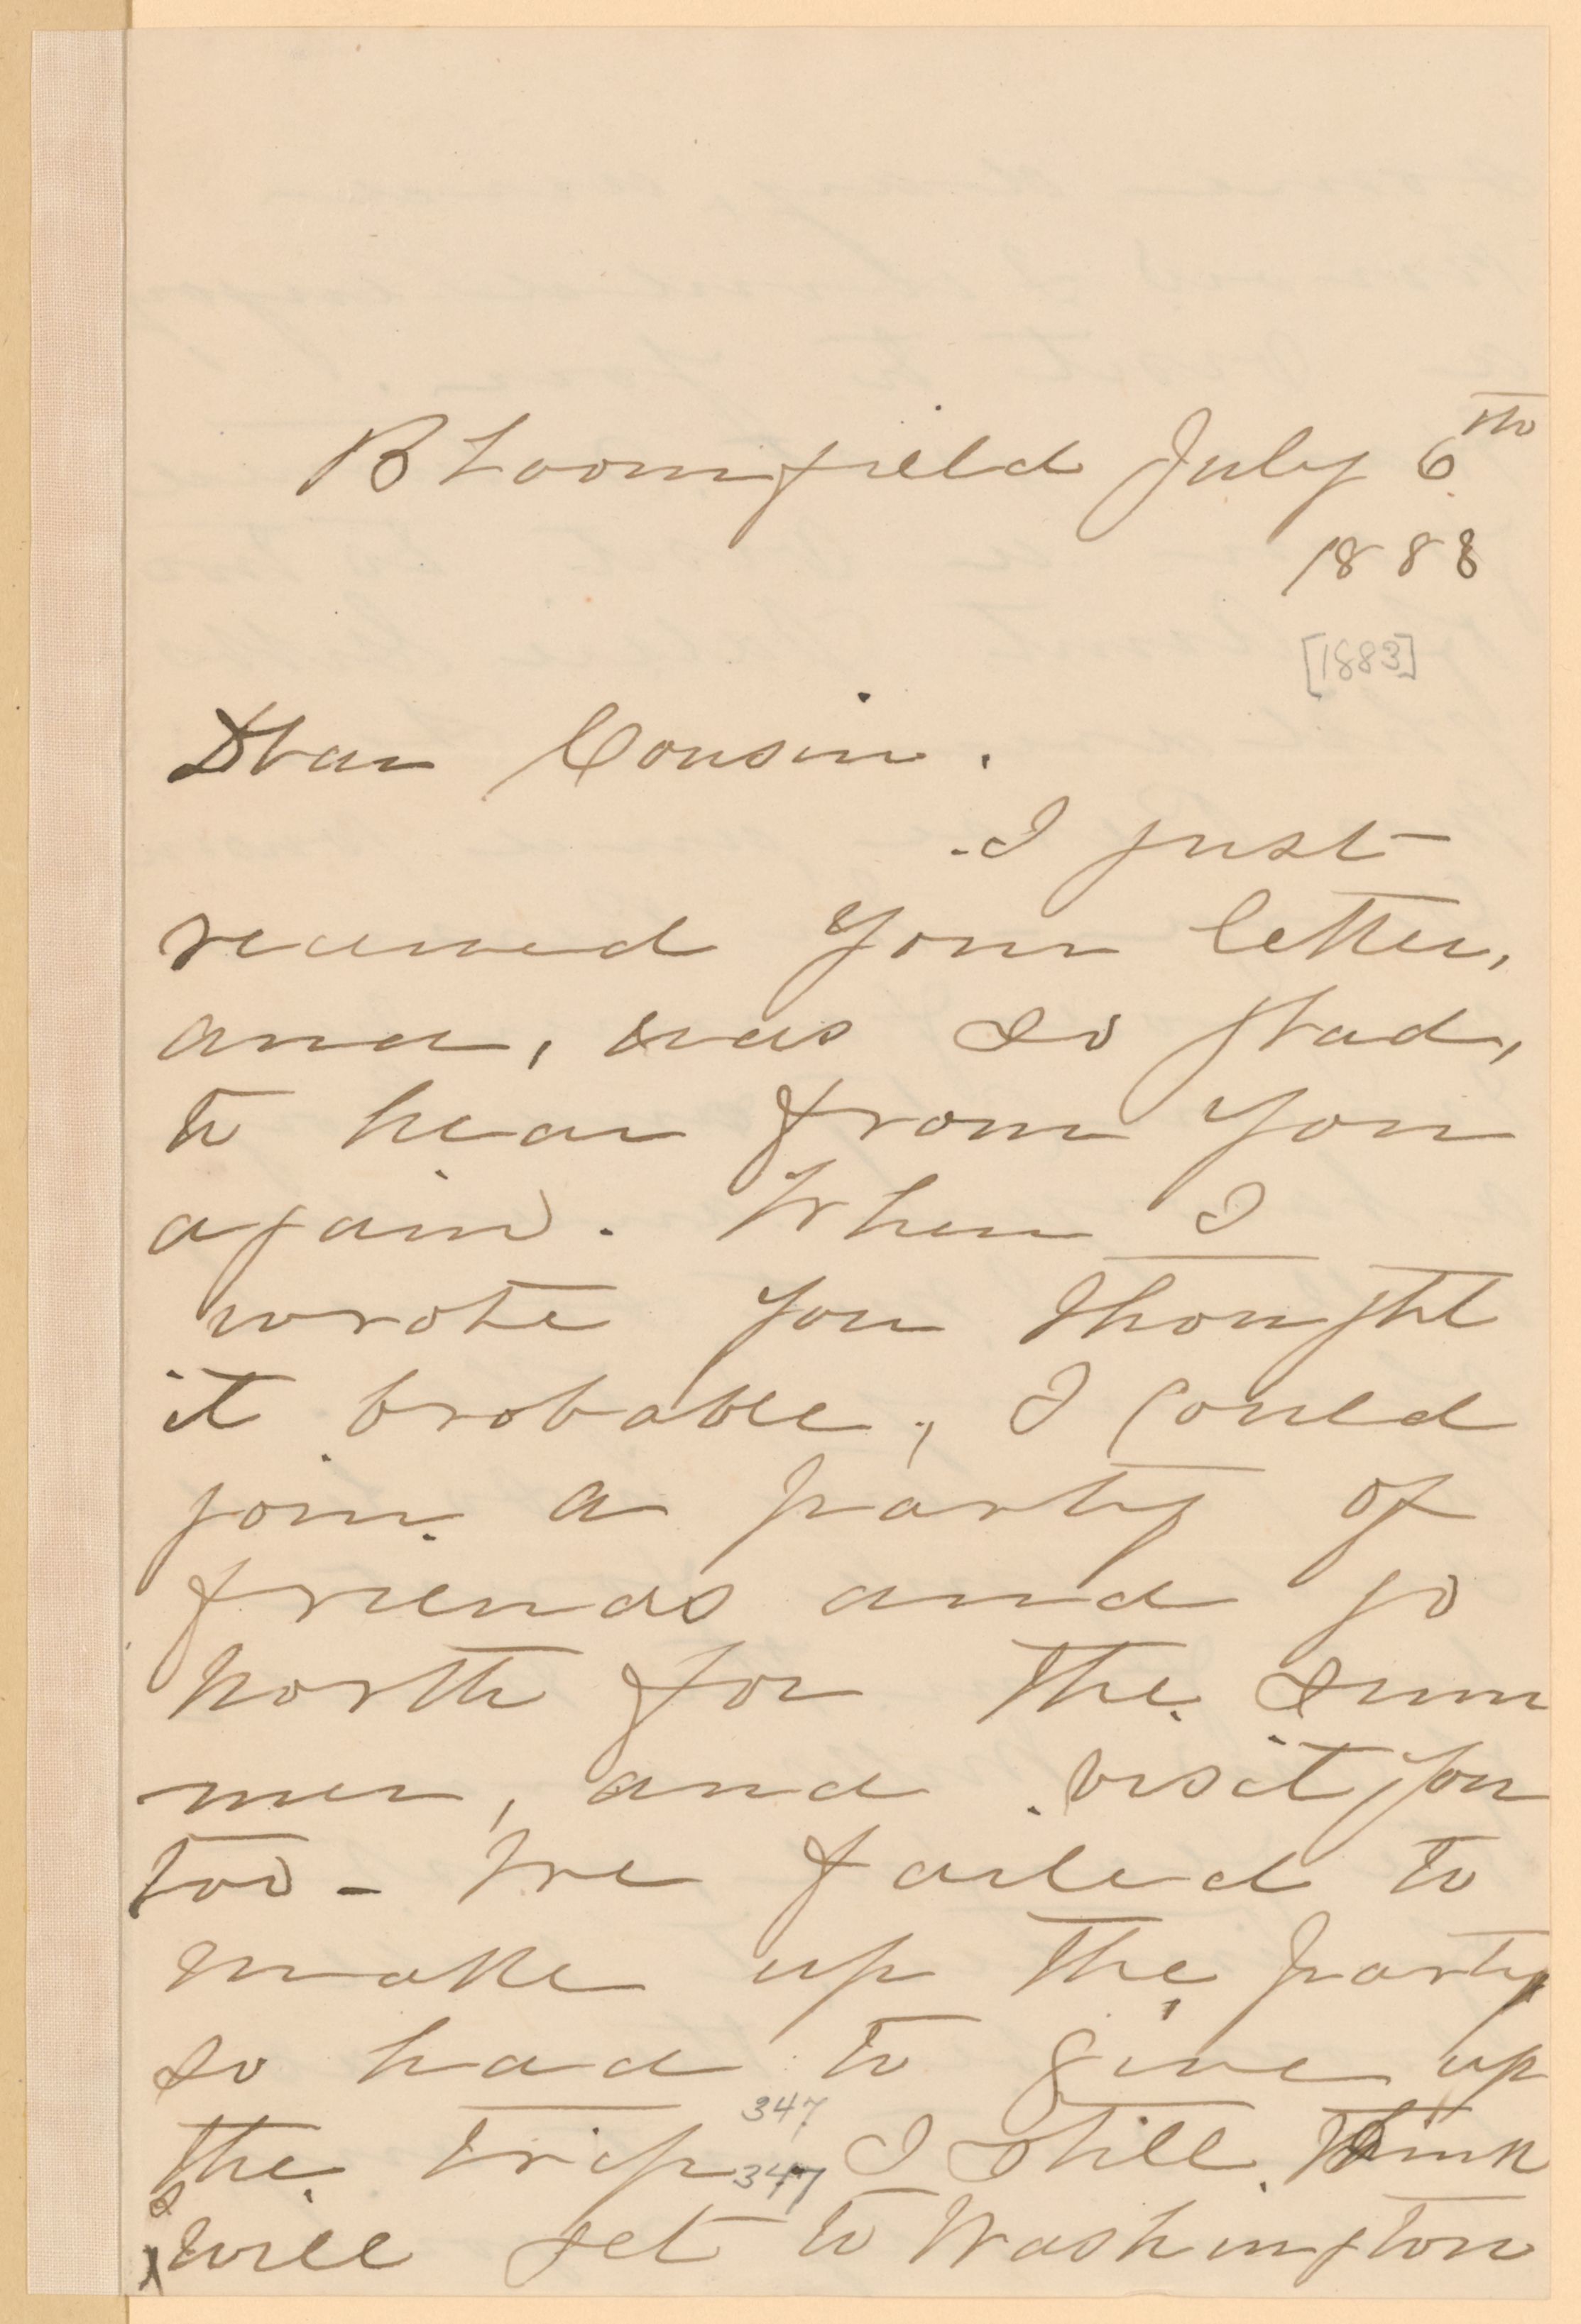 Bloomfield July 6th
1888
[1883]
Dear Cousin.
I just
received your letter,
and, was so glad,
to hear from you
again. When I
wrote you thought
it probable, I could
join a party of
friends and go
North for the sum
mer, and visit you
too - We failed to
make up the party
so had to give up
347
the trip I still think
347
I
will get to Washington